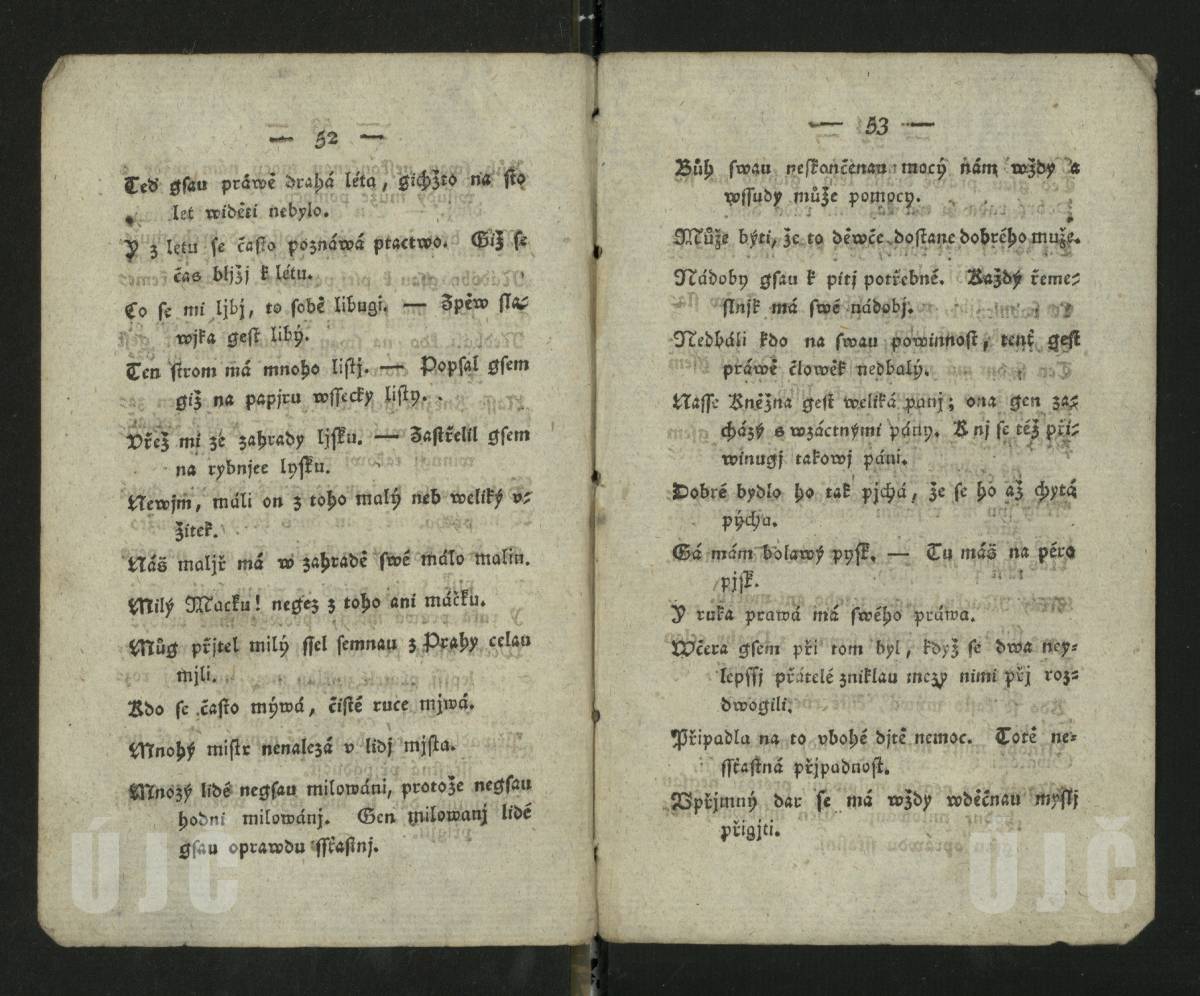 — 52 —
Teď gsau práwě drahá léta, gichžto na sto
let widěti nebylo.
Y z letu se často poznáwá ptactwo. Giž se
čas bljžj k létu.
Co se mi ljbj, to sobě libugi. — Zpěw sla-
wjka gest libý.
Ten strom má mnoho listj. — Popsal gsem
giž na papjru wssecky listy.
Vřež mi ze zahrady ljsku. — Zastřelil gsem
na rybnjce lysku.
Newjm, máli on z toho malý neb weliký v-
žitek.
Náš maljř má w zahradě swé málo malin.
Milý Macku! negez z toho ani máčku.
Můg přjtel milý ssel semnau z Prahy celau
mjli.
Kdo se často mýwá, čisté ruce mjwá.
Mnohý mistr nenalezá v lidj mjsta.
Mnozý lidé negsau milowáni, protože negsau
hodni milowánj. Gen milowanj lidé
gsau oprawdu sstastnj.
— 53 —
Bůh swau neskončenau mocý nám wždy a
wssudy může pomocy.
Může býti, že to děwče dostane dobrého muže.
Nádoby gsau k pitj potřebné. Každý řeme-
slnjk má swé nádobj.
Nedbáli kdo na swau powinnost, tenť gest
práwě člowěk nedbalý.
Nasse Kněžna gest weliká panj; ona gen za-
cházý s wzáctnými pány. K nj se též při-
winugj takowj páni.
Dobré bydlo ho tak pjchá, že se ho až chytá
pýcha.
Gá mám bolawý pysk. — Tu máš na péro
pjsk.
Y ruka prawá má swého práwa.
Wčera gsem při tom byl, když se dwa ney-
lepssj přátelé zniklau mezy nimi přj roz-
dwogili.
Připadla na to vbohé djtě nemoc. Totě ne-
sstastná přjpadnost.
Vpřjmný dar se má wždy wděčnau myslj
přigjti.
ÚJČ
ÚJČ